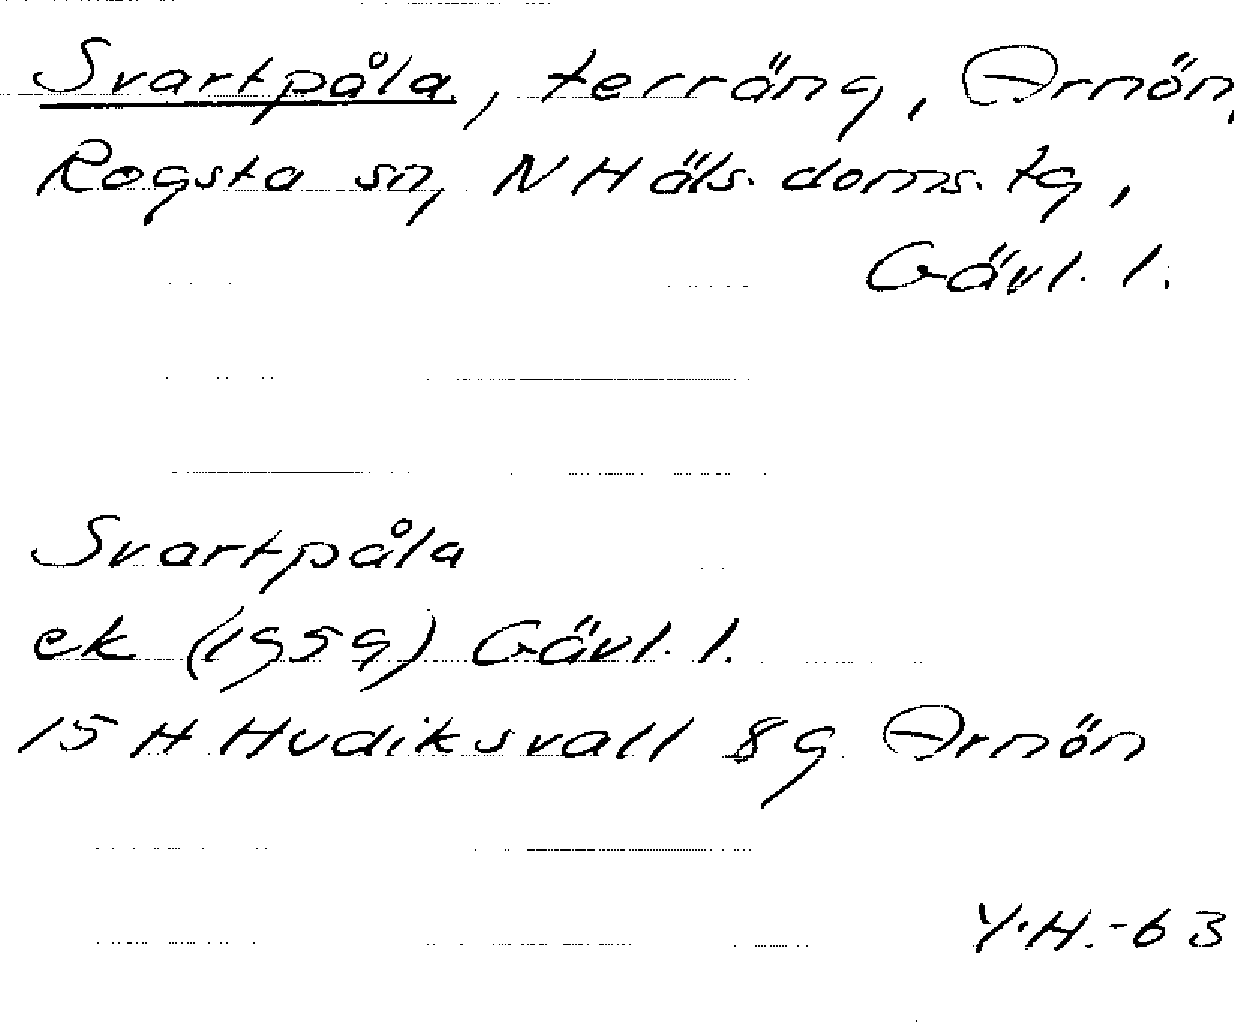 Svartpåla, terräng, Arnön,
Rogsta sn, N Häls. doms. tg,
Gävl. l.
Svartpåla
ek (1959) Gävl. l.
15 H Hudiksvall 8g Arnön
Y.H.-63